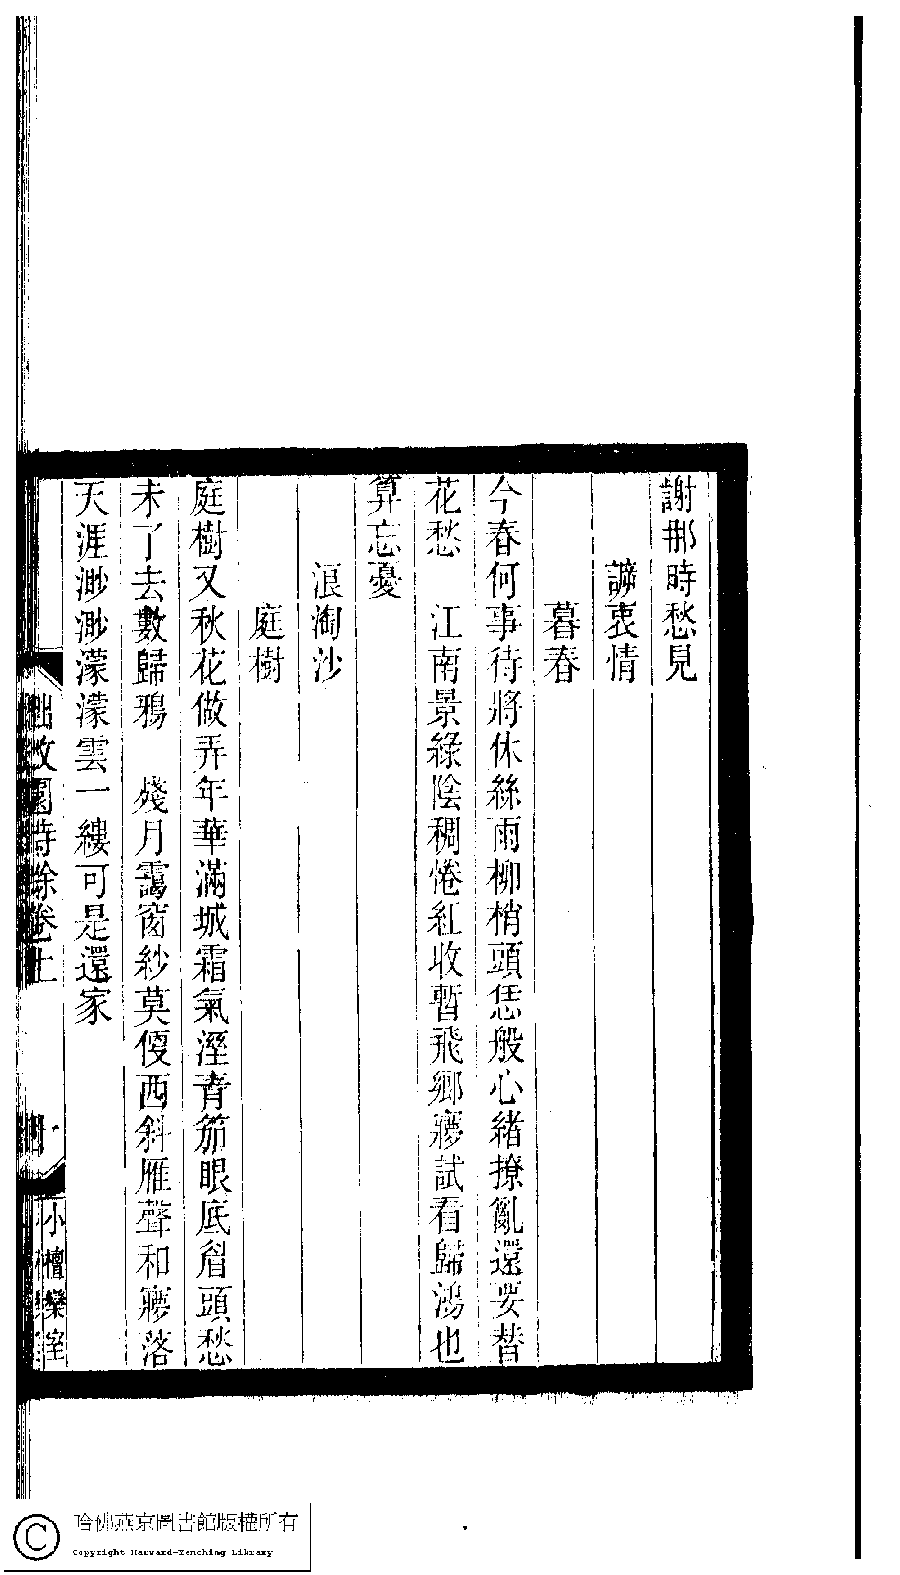 謝那時愁見
訴衷情
暮春
今春何事待將休絲雨柳梢頭恁般心緒撩亂還要替
花愁　江南景綠陰稠惓紅收暫飛鄉寱試看歸鴻也
算忘憂
浪淘沙
庭樹
庭樹又秋花做弄年華滿城霜氣溼青笳眼底眉頭愁
未了去數歸鴉　殘月靄窗紗莫傻西斜雁聲和寱落
天涯渺渺濛濛雲一縷可是還家
拙政園詩餘卷上
小檀欒室
哈佛燕京圖書館版權所有
Copyright Harvard-Yenching Library